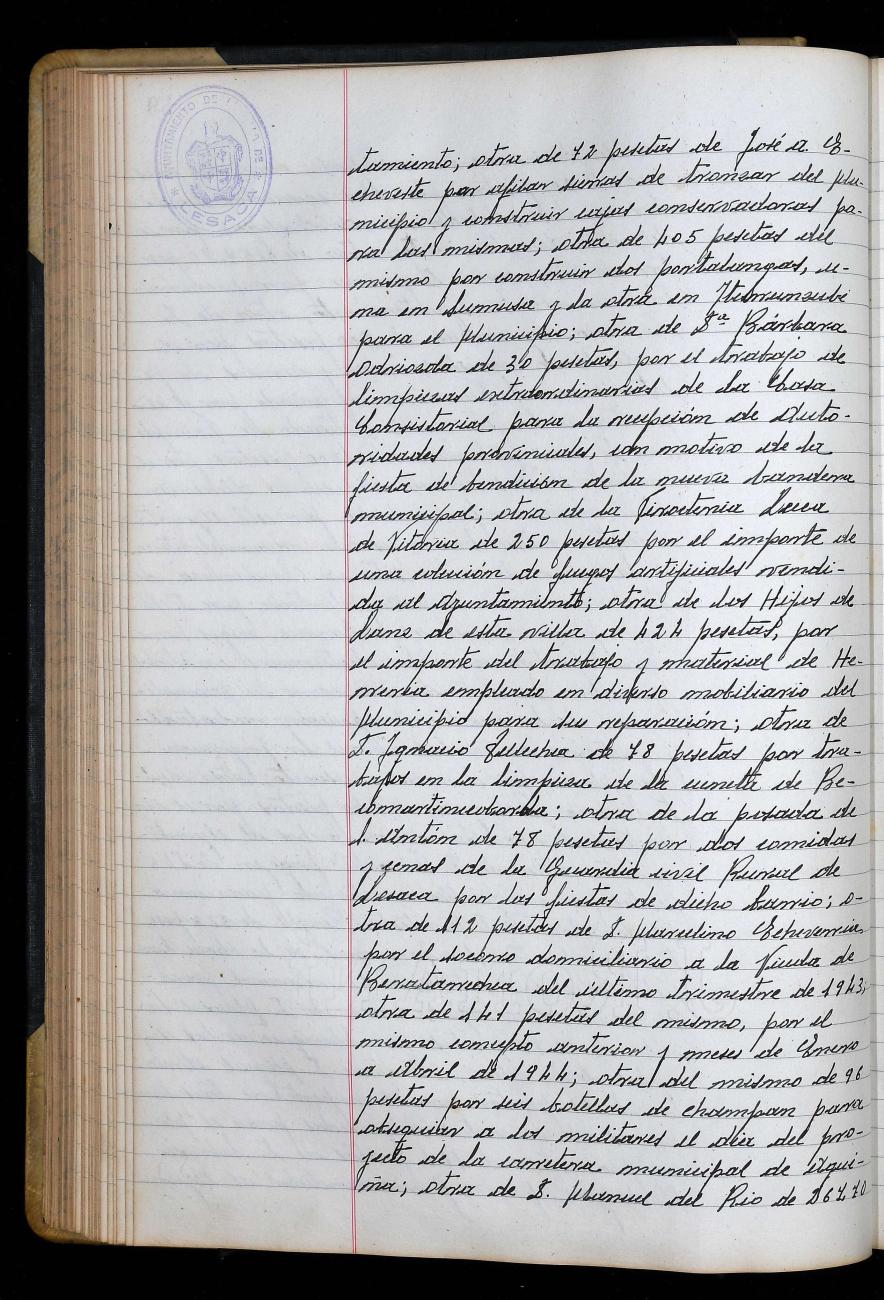 AYUNTAMIENTO DE LA VILLA DE
LESACA
tamiento; otra de 72 pesetas de José A. E-
cheveste por afilar sierras de tronzar del Mu-
nicipio y construir cajas conservadoras pa-
ra las mismas; otra de 405 pesetas del
mismo por construir dos portalangas, u-
na en Sumusa y la otra en
para el Municipio; otra de Dª Bárbara
Odriozola de 30 pesetas, por el trabajo de
limpiezas extraordinarias de la Casa
Consistorial para la recepción de Auto-
ridades provinciales, con motivo de la
fiesta de bendición de la nueva bandera
municipal; otra de la Pirotecnia Lecea
de Vitoria de 250 pesetas por el importe de
una colección de fuegos artificiales vendi-
da al Ayuntamiento; otra de los Hijos de
Lanz de esta villa de 424 pesetas, por
el importe del trabajo y material de He-
rreria empleado en diverso mobiliario del
Municipio para su reparación; otra de
D. Ignacio Tellechea de 78 pesetas por tra-
bajos en la limpieza de la cuneta de Be-
comartinecoborda; otra de la posada de
S. Antón de 78 pesetas por dos comidas
y cenas de la Guardia civil Rural de
Lesaca por las fiestas de dicho barrio; o-
tra de 112 pesetas de D. Marcelino Echeverria,
por el socorro domiciliario a la Viuda de
Beratarrechea del ultimo trimestre de 1943;
otra de 141 pesetas del mismo, por el
mismo concepto anterior y meses de Enero
a Abril de 1944; otra del mismo de 96
pesetas por seis botellas de champan para
obsequiar a los militares el dia del pro-
yecto de la carretera municipal de Agui-
ña; otra de D. Manuel del Rio de 267,70